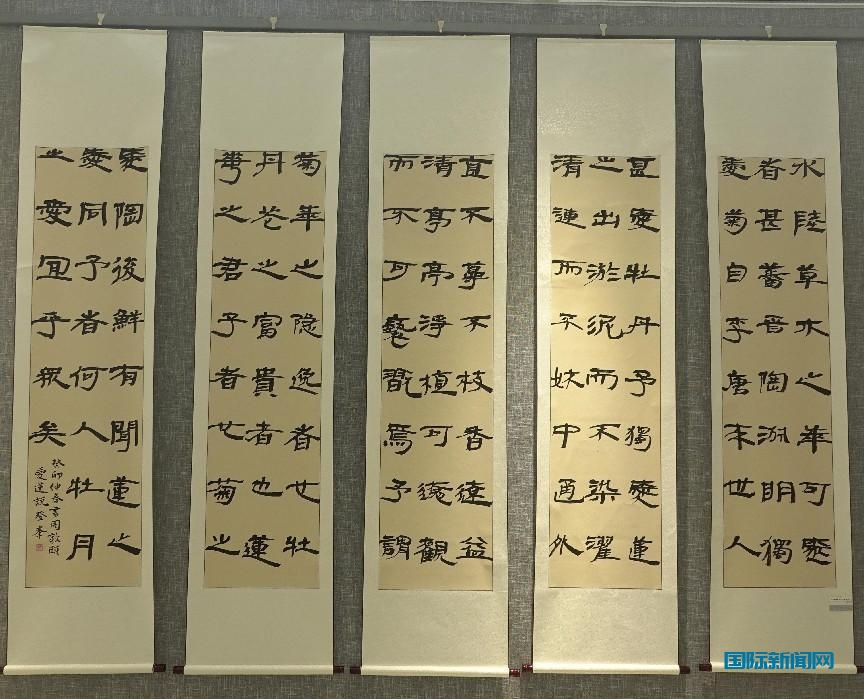 水陸草木之華可愛
者甚蕃晉陶淵明獨
愛菊自李唐来世人
甚愛牡丹予獨愛蓮
之出淤泥而不染濯
清漣而不妖中通外
直不蔓不枝香遠益
清亭亭淨植可遠觀
而不可褻翫焉予謂
菊華之隐逸者也牡
丹花之富貴者也蓮
華之君子者也菊之
愛陶後鮮有聞蓮之
愛同予者何人牡丹
之愛宜乎衆矣
癸卯仲春書周敦頤
愛蓮說登峯
国际新闻网